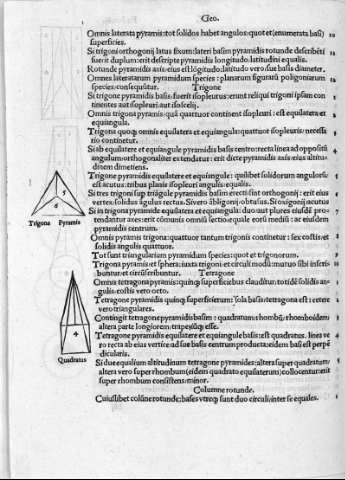 Geo.
Omnis laterata pyramis: tot solidos habet angulos: quot et (enumerata basi)
superficies.
Si trigoni orthogonij latus fixum: lateri basim pyramidis rotunde describēti
fuerit duplum: erit descripte pyramidis longitudo: latitudini equalis.
Rotunde pyramidis axis: eius est lōgitudo: latitudo vero sue basis diameter.
Omnes lateratarum pyramidum species: planarum figurarū poligoniarum
species: consequūtur. Trigone
Si trigone pyramidis basis: fuerit isopleurus: erunt reliqui trigoni ipsam con
tinentes aut isopleuri: aut isosceles.
Omnis trigona pyramis: quā quattuor continent isopleuri: est equilatera et
equiangula.
Trigona quoq omnis equilatera et equiangula: quattuor isopleuris: necessa
rio continetur.
Si ab equilatere et equiangule pyramidis basis centro: recta linea ad oppositū
angulum orthogonaliter extendatur: erit dicte pyramidis axis eius altitu
dinem dimetiens.
Trigone pyramidis equilatere et equiangule: quilibet solidorum angulorū
est acutus: tribus planis isopleuri angulis: equalis.
Si tres trigoni sup triāgule pyramidis basim erecti sint orthogonij: erit eius
vertex solidus āgulus rectus. Si vero ābligonij obtusus. Si oxigonij acutus
Si in trigona pyramide equilatera et equiangula: duo aut plures eiusdē pro-
tendantur axes: erit cōmunis omniū sectio: equale eorū mediū: ac eiusdem
pyramidis centrum.
Omnis pyramis trigona: quattuor tantum trigonis continetur: sex costis: et
solidis angulis quattuor.
Tot sunt triangularium pyramidum species: quot et trigonorum.
Trigona pyramis et sphera: iuxta trigoni et circuli modū: mutuo sibi inscri
buntur: et circūscribuntur. Tetragone
Omnis tetragona pyramis: quinq superficiebus clauditur: to tidē solidis an-
gulis: costis vero octo.
Tetragone pyramidis quinq superficierum: sola basis: tetragona est: cetere
vero triangulares.
Contingit tetragone pyramidis basim: quadratum: rhombū: rhomboidem:
altera parte longiorem: trapesiūq esse.
Tetragone pyramidis equilatere et equiangule basis: est quadratus. linea ve
ro recta ab eius vertice ad sue basis centrum producta: eidem basi est perpē
dicularis.
Si due equalium altitudinum tetragone pyramides: altera super quadratum
altera vero super rhombum (eidem quadrato equilaterum) collocentur: erit
super rhombum consistens: minor.
Columne rotunde.
Cuiuslibet colūne rotunde: bases vtrinq sunt duo circuli: inter se equales.
5
6
Trigona Pyramis
4
Quadratus